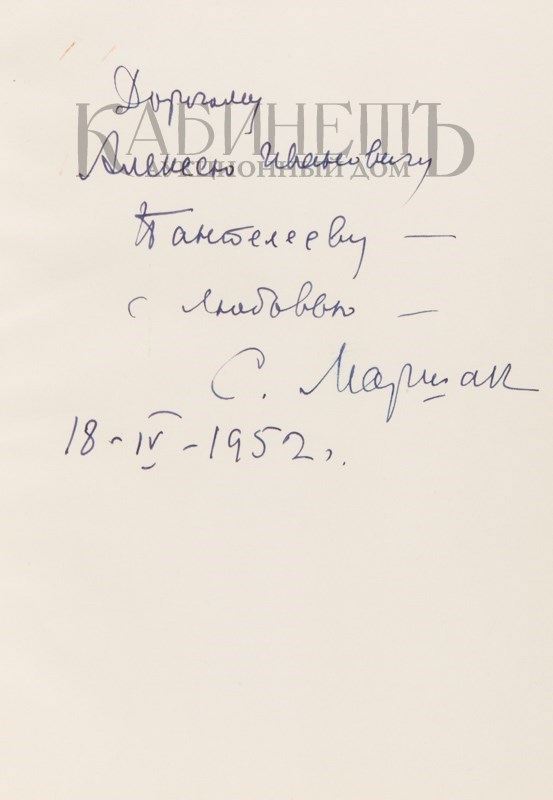 Дорогому
КАБИНЕТЪ
Алексею Ивановичу
АУКЦИОННЫЙ ДОМ
Пантелееву —
с любовью —
С. Маршак
18-IV-1952 г.